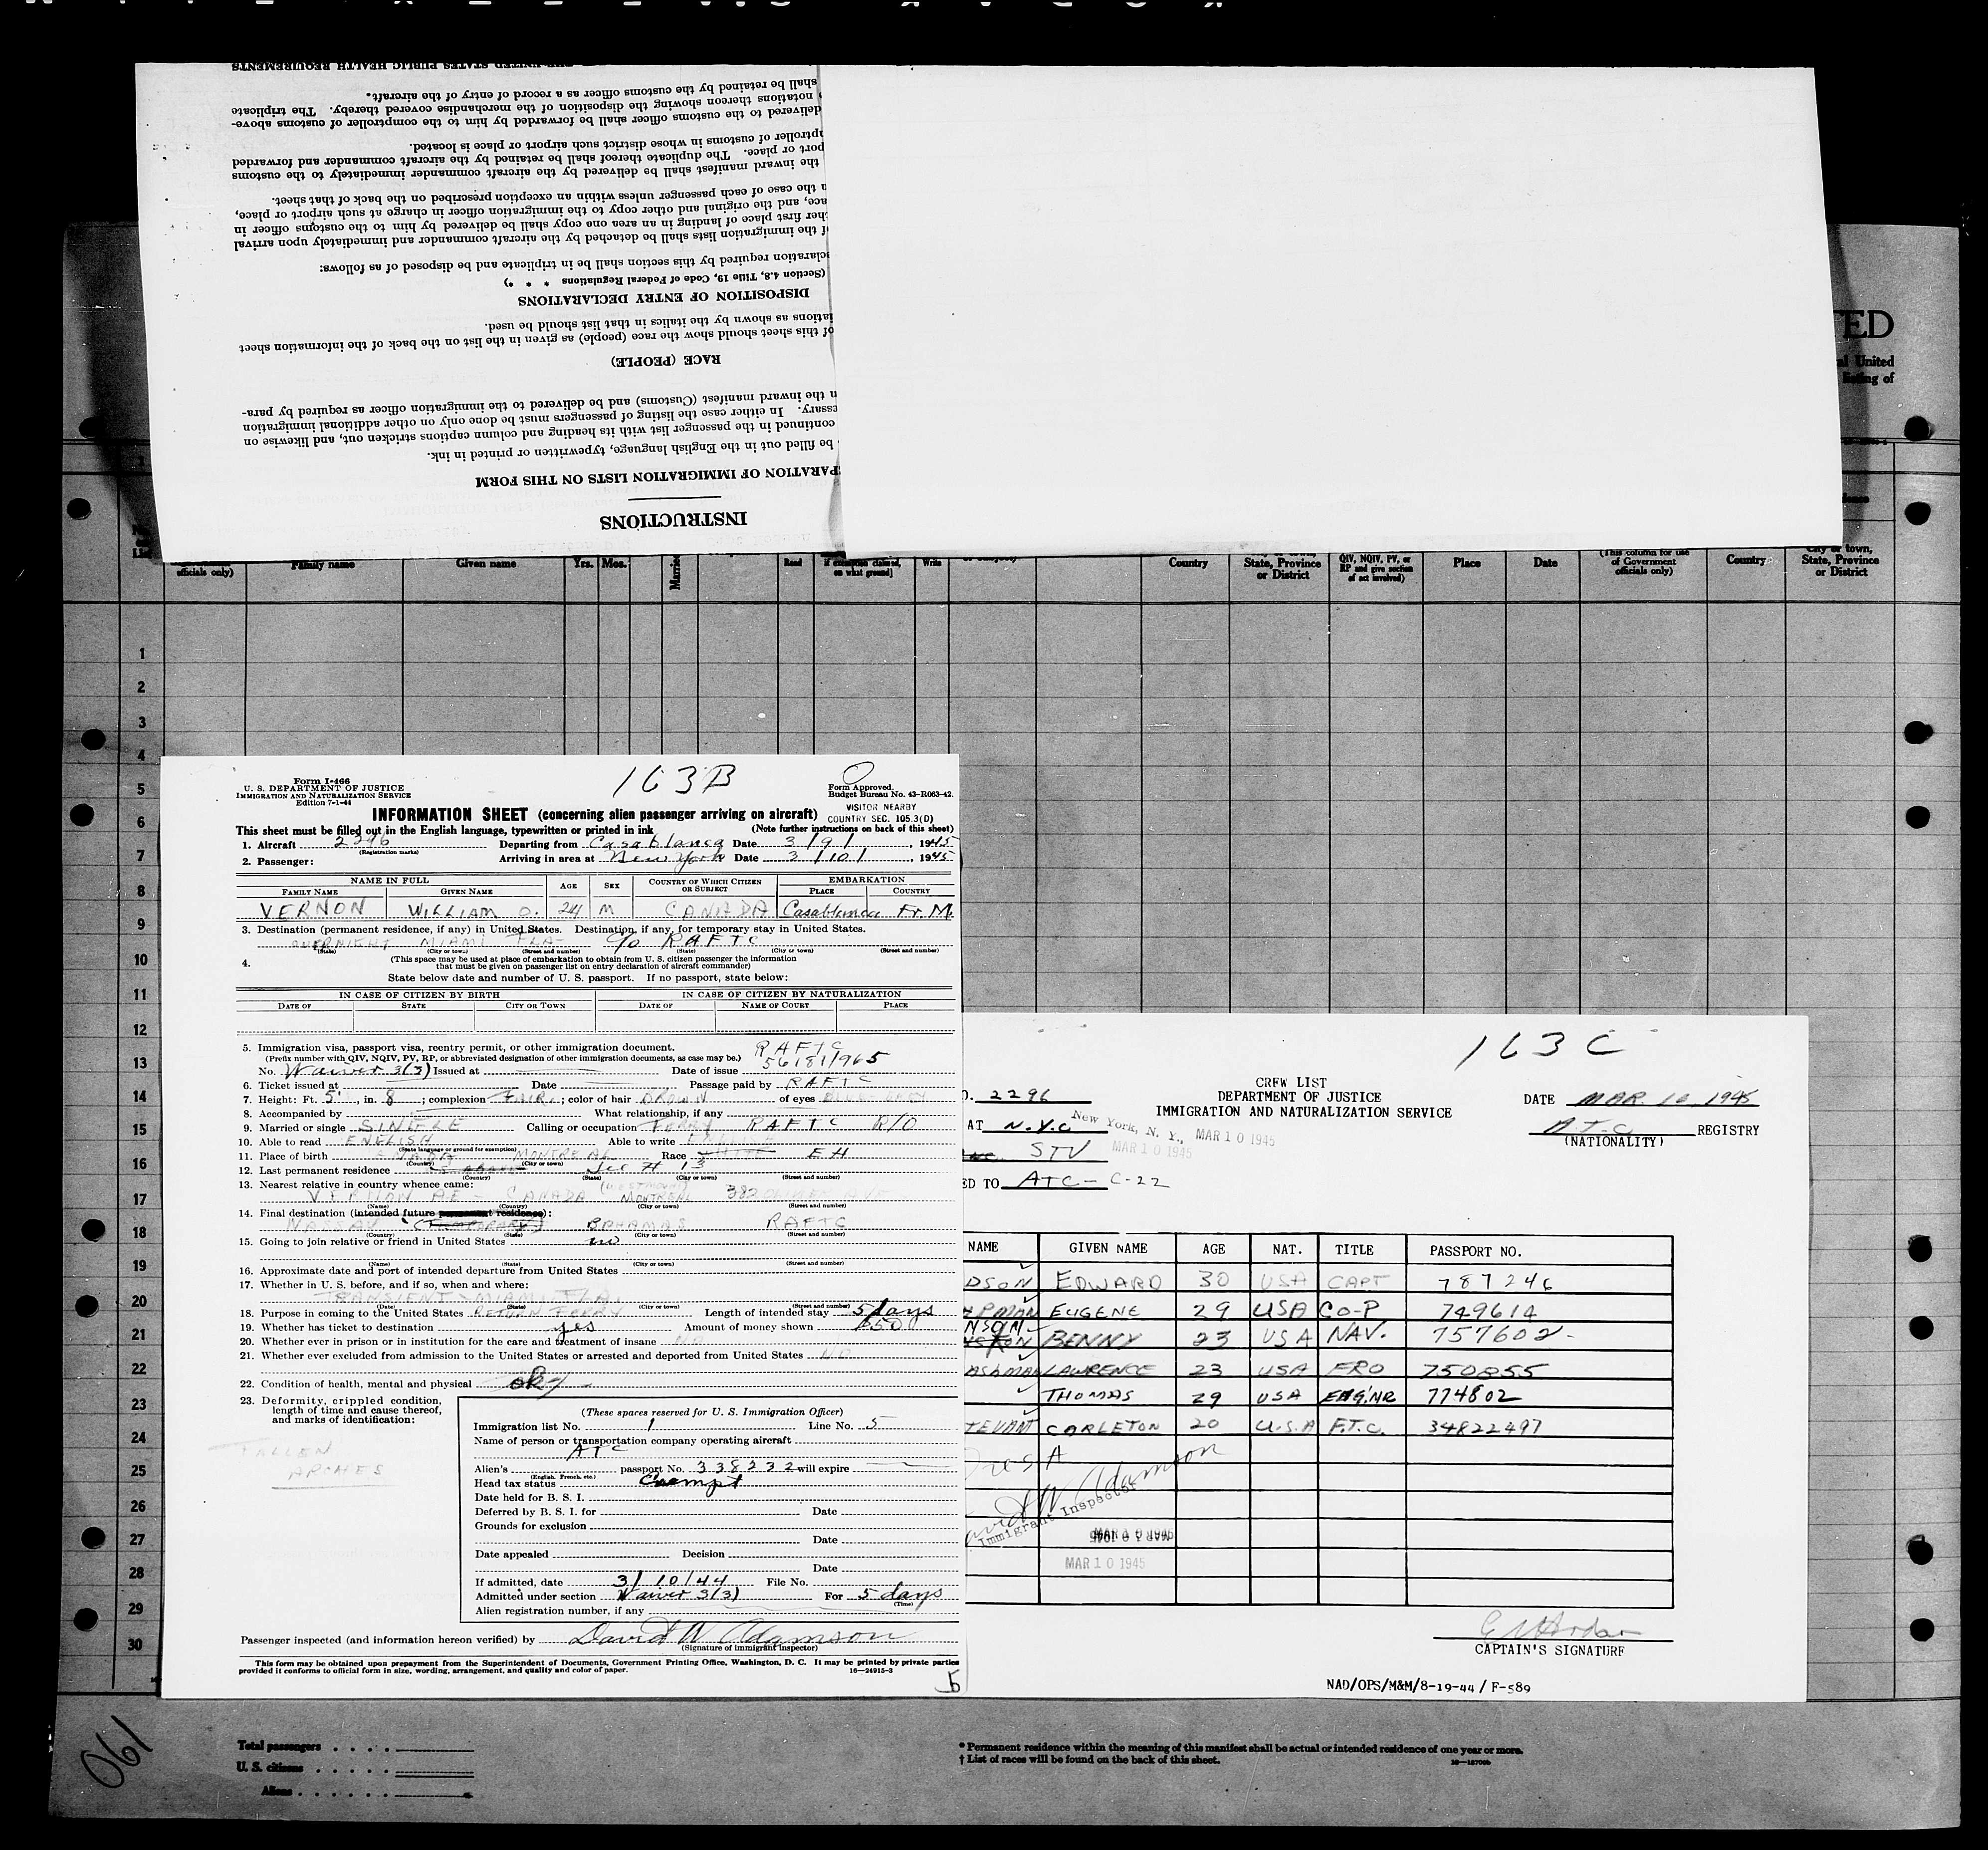 INSTRUCTIONS
PARATION OF IMMIGRATION LISTS ON THIS FORM
be filled out in the English language, typewritten or printed in ink.
continued in the passenger list with its heading and column captions stricken out, and likewise on
essary. In either case the listing of passengers must be done only on other additional immigration
n the inward manifest (Customs) and be delivered to the immigration officer as required by para-
RACE (PEOPLE)
of this sheet should show the race (people) as given in the list on the back of the information sheet
iations as shown by the italics in that list should be used.
DISPOSITION OF ENTRY DECLARATIONS
(Section 4.8, Title 19, Code of Federal Regulations * * *)
claration required by this section shall be in triplicate and be disposed of as follows:
of the immigration lists shall be detached by the aircraft commander and immediately upon arrival
her first place of landing in an area one copy shall be delivered by him to the customs officer in
ace, and the original and other copy to the immigration officer in charge at such airport or place,
n the case of each passenger unless within an exception prescribed on the back of that sheet.
the inward manifest shall be delivered by the aircraft commander immediately to the customs
port or place. The duplicate thereof shall be retained by the aircraft commander and forwarded
ptroller of customs in whose district such airport or place is located.
delivered to the customs officer shall be forwarded by him to the comptroller of customs above-
notations thereon showing the disposition of the merchandise covered thereby. The triplicate
shall be retained by the customs officer as a record of entry of the aircraft.
UNITED STATES PUBLIC HEALTH REQUIREMENTS
TED
al United
listing of
officials only) Family name Given name Yrs. Mos. Married Read if exemption claimed, on what ground] Write Country State, Province or District QIV, NQIV, PV, or RP and give section of act involved) Place Date (This column for use of Government officials only) Country City or town, State, Province or District
1
2
3
4
5
6
7
8
9
10
11
12
13
14
15
16
17
18
19
20
21
22
23
24
25
26
27
28
29
30
163B
Form I-466
U. S. DEPARTMENT OF JUSTICE
IMMIGRATION AND NATURALIZATION SERVICE
Edition 7-1-44
Form Approved.
Budget Bureau No. 43-R063-42.
VISITOR NEARBY
COUNTRY SEC. 105.3(D)
INFORMATION SHEET (concerning alien passenger arriving on aircraft)
This sheet must be filled out in the English language, typewritten or printed in ink (Note further instructions on back of this sheet)
1. Aircraft 2296 Departing from Casablanca Date 3/9/, 1945
(Registration marks)
2. Passenger: Arriving in area at New York Date 3/10/, 1945
NAME IN FULL AGE SEX COUNTRY OF WHICH CITIZEN OR SUBJECT EMBARKATION
FAMILY NAME GIVEN NAME PLACE COUNTRY
VERNON WILLIAM O. 24 M CANADA Casablanca Fr. M.
3. Destination (permanent residence, if any) in United States. Destination, if any, for temporary stay in United States.
OVERNIGHT MIAMI FLA- c/o RAFTC
(State) (City or town) (Street and number) (State) (City or town) (Street and number)
4. (This space may be used at place of embarkation to obtain from U. S. citizen passenger the information
that must be given on passenger list on entry declaration of aircraft commander)
State below date and number of U. S. passport. If no passport, state below:
IN CASE OF CITIZEN BY BIRTH IN CASE OF CITIZEN BY NATURALIZATION
DATE OF STATE CITY OR TOWN DATE OF NAME OF COURT PLACE
5. Immigration visa, passport visa, reentry permit, or other immigration document. RAFTC
(Prefix number with QIV, NQIV, PV, RP, or abbreviated designation of other immigration documents, as case may be.) 56181/965
No. Waiver 3(3) Issued at Date of issue
6. Ticket issued at Date Passage paid by RAFTC
7. Height: Ft. 5', in. 8; complexion FAIR; color of hair BROWN of eyes BLUE-GREY
8. Accompanied by What relationship, if any
9. Married or single SINGLE Calling or occupation FERRY RAFTC R/O
10. Able to read ENGLISH Able to write ENGLISH
(State language or ground for exemption)
11. Place of birth CANADA MONTREAL Race WHITE EH
(Country) (City or town)
12. Last permanent residence as above
(Country) (State) (City or town) (Street and number)
13. Nearest relative in country whence came:
VERNON AE- CANADA (WESTMOUNT) MONTREAL 382
(Name) (Country) (City or town) (Street and number)
14. Final destination (intended future permanent residence):
NASSAU (TEMPORARY) BAHAMAS RAFTC
(Country) (State) (City or town) (Street and number)
15. Going to join relative or friend in United States no
(Name) (State) (City or town) (Street and number)
16. Approximate date and port of intended departure from United States
17. Whether in U. S. before, and if so, when and where:
TRANSIENT - MIAMI FLA.
(Date) (State) (City or town) (Street and number)
18. Purpose in coming to the United States RETURN FERRY Length of intended stay 5 days
19. Whether has ticket to destination yes Amount of money shown $50
20. Whether ever in prison or in institution for the care and treatment of insane NO
21. Whether ever excluded from admission to the United States or arrested and deported from United States NO
22. Condition of health, mental and physical oky
23. Deformity, crippled condition,
length of time and cause thereof,
and marks of identification:
FALLEN
ARCHES
(These spaces reserved for U. S. Immigration Officer)
Immigration list No. 1 Line No. 5
Name of person or transportation company operating aircraft
ATC
Alien's passport No. 338232 will expire
(English, French, etc.)
Head tax status Exempt
Date held for B. S. I.
Deferred by B. S. I. for Date
Grounds for exclusion
Date
Date appealed Decision
Date
If admitted, date 3/10/44 File No.
Admitted under section Waiver 3(3) For 5 days
(Time)
Alien registration number, if any
Passenger inspected (and information hereon verified) by David W Adamson
(Signature of immigrant inspector)
This form may be obtained upon prepayment from the Superintendent of Documents, Government Printing Office, Washington, D. C. It may be printed by private parties
provided it conforms to official form in size, wording, arrangement, and quality and color of paper. 16—24915-3
5
163 C
CREW LIST
DEPARTMENT OF JUSTICE
IMMIGRATION AND NATURALIZATION SERVICE
O. 2296
DATE MAR. 10, 1945
AT N.Y.C New York, N. Y., MAR 10 1945
MAR 10 1945
A.T.C REGISTRY
(NATIONALITY)
STV
ED TO ATC - C-22
NAME GIVEN NAME AGE NAT. TITLE PASSPORT NO.
DSON EDWARD 30 USA CAPT 787246
PMAN EUGENE 29 USA CO-P 749614
NSON BENNY 23 USA NAV. 757602
ASHMAN LAWRENCE 23 USA FRO 750855
THOMAS 29 USA ENG'NR 774802
TEVANT CARLETON 20 U.S.A F.T.C. 34822497
David W Adamson
Immigrant Inspector
MAR 10 1945
MAR 10 1945
CAPTAIN'S SIGNATURE
NAD/OPS/M&M/8-19-44 / F-589
190
Total passengers . . . .
U. S. citizens . . . . .
Aliens . . . . . . .
* Permanent residence within the meaning of this manifest shall be actual or intended residence of one year or more.
† List of races will be found on the back of this sheet.